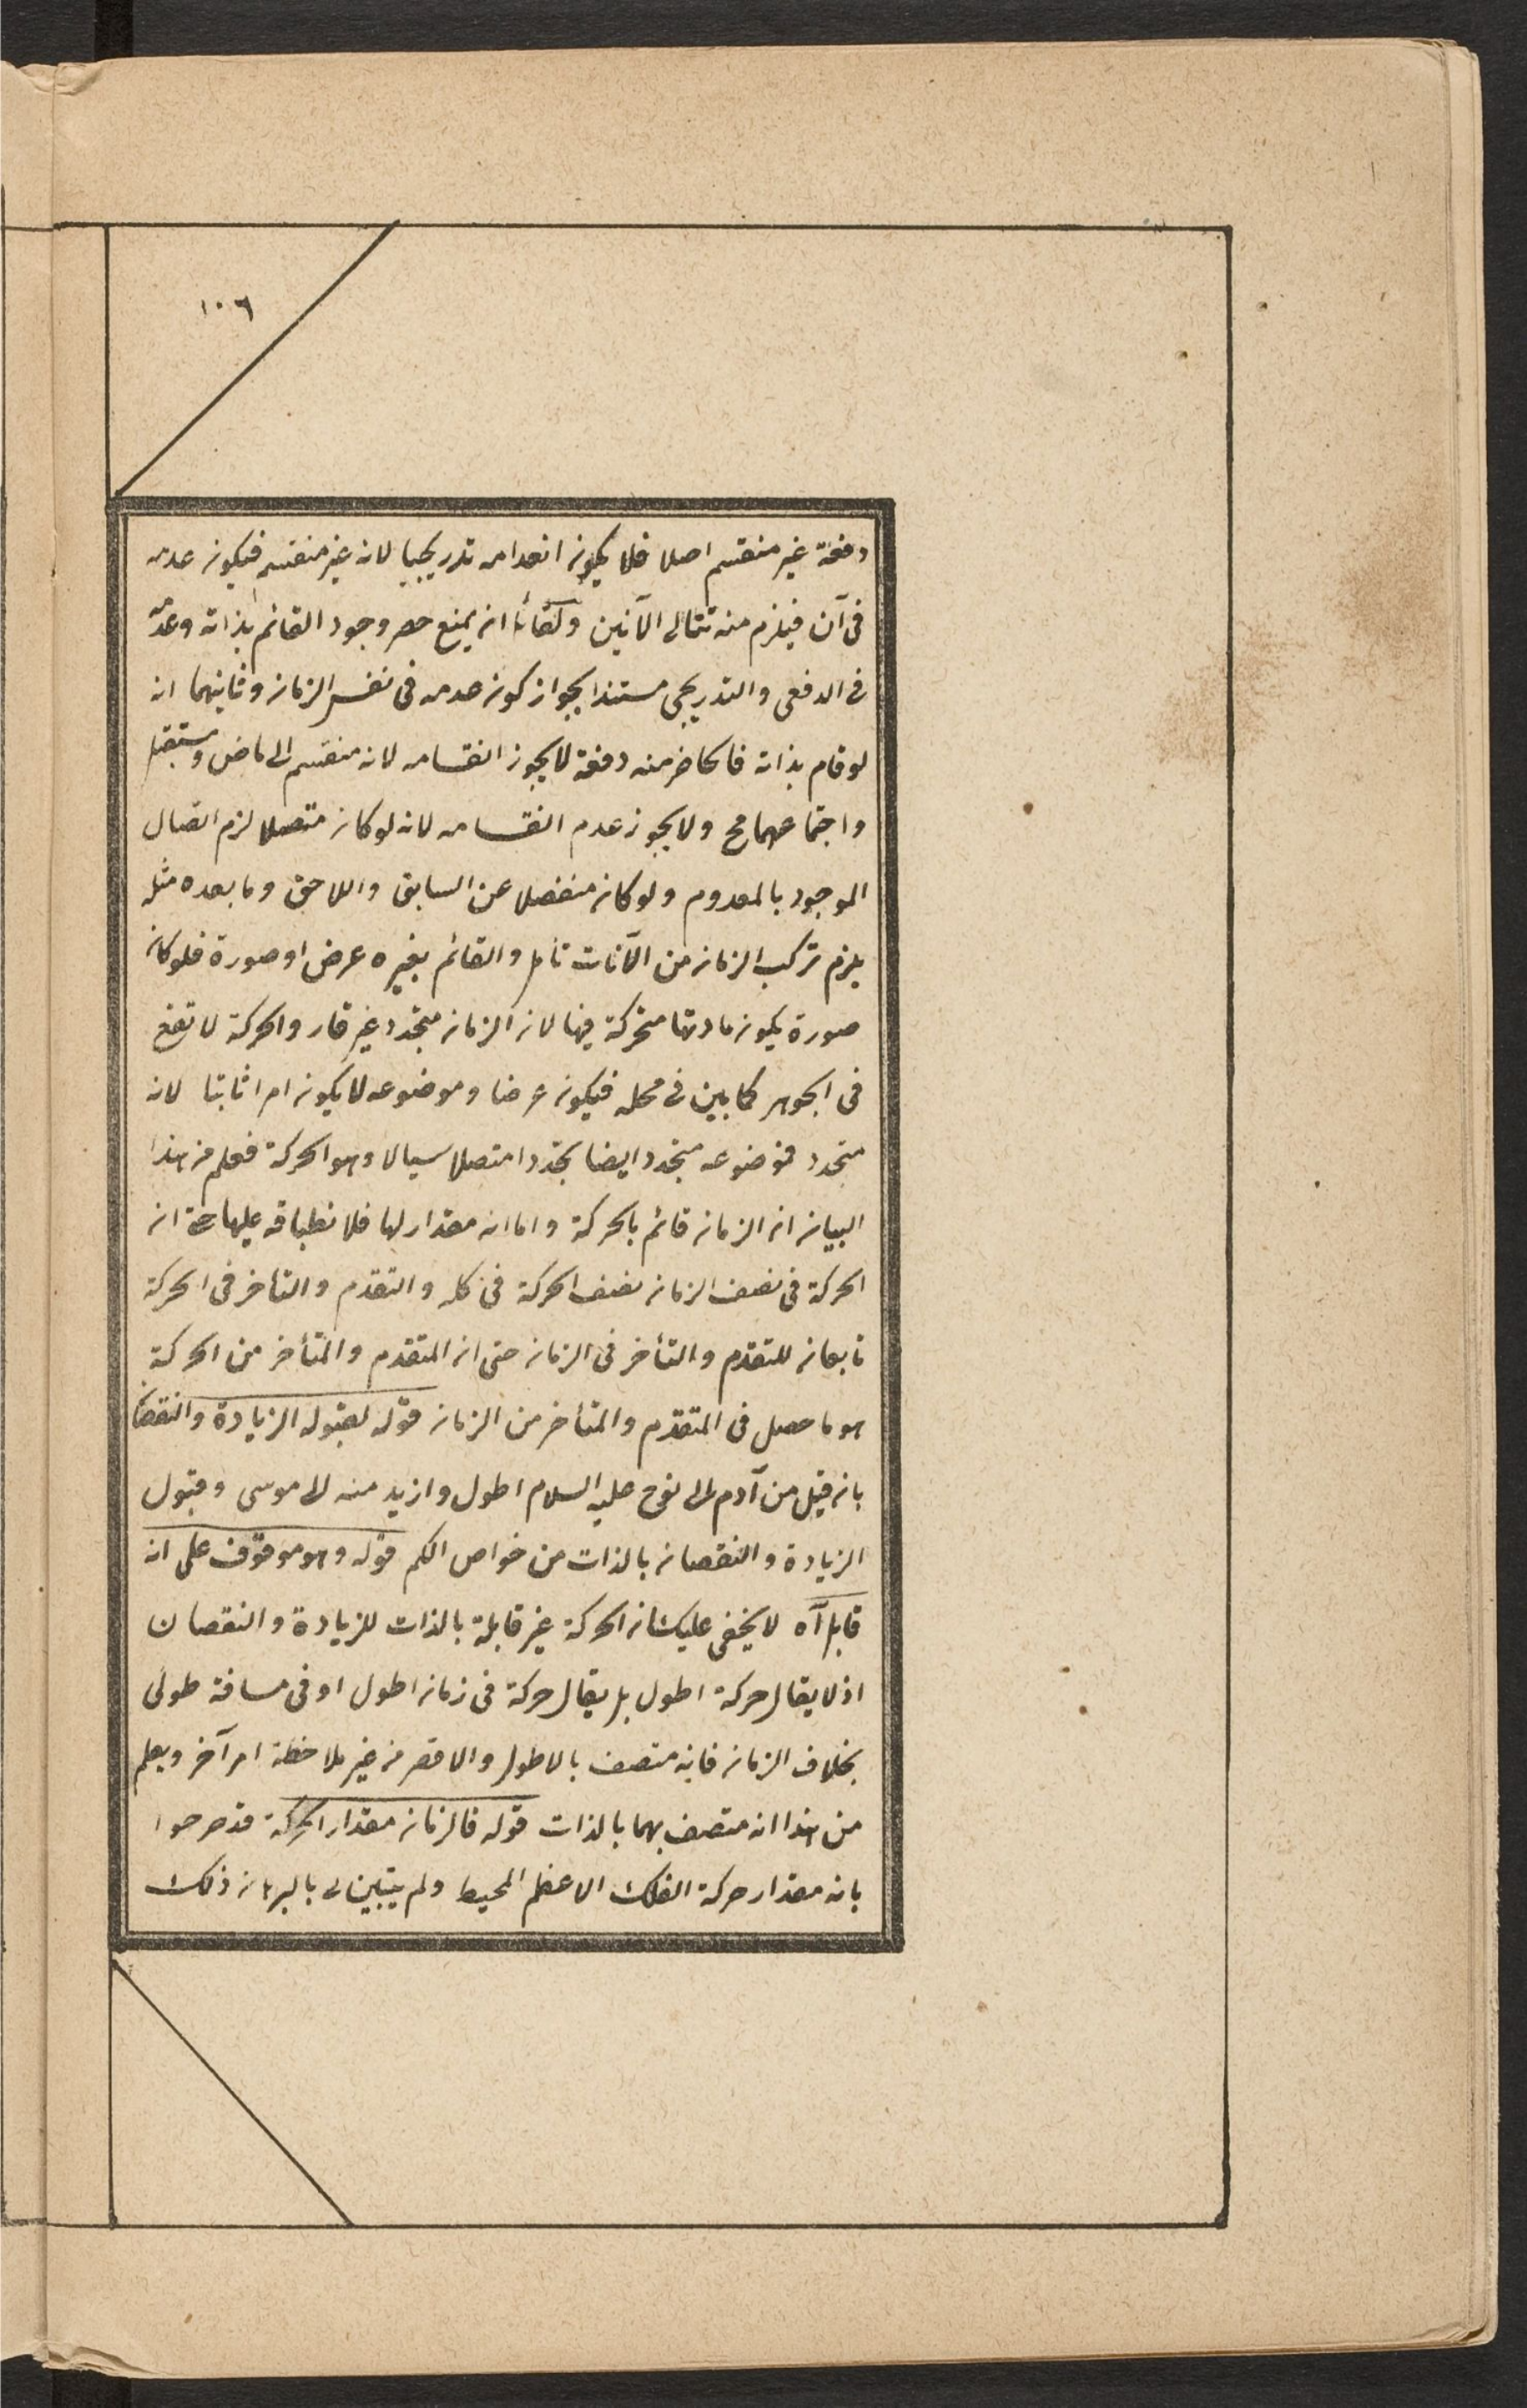 ١٠٦
دفعة غير منقسم اصلا فلا يكون انعدامه تدريجيا لانه غير منقسم فيكون عدمه
فى آن فيلزم منه تتالى الآنين ولقائل ان يمنع حصر وجود القائم بذاته وعدمه
فى الدفعى والتدريجى مستندا بجواز كون عدمه فى نفس الزمان وثانيهما انه
لو قام بذاته فالحاضر منه دفعة لا يجوز انقسامه لانه منقسم الى ماض ومستقبل
واجتماعهما مح ولا يجوز عدم انقسامه لانه لو كان متصلا لزم اتصال
الموجود بالمعدوم ولو كان منفصلا عن السابق واللاحق وما بعده مثله
يلزم تركب الزمان من الآنات تأمل والقائم بغيره عرض او صورة فلو كان
صورة يكون مادتها متحركة فيها لان الزمان متجدد غير قار والحركة لا تقع
فى الجوهر كما بين فى محله فيكون عرضا وموضوعه لا يكون امرا ثابتا لانه
متجدد فموضوعه متجدد ايضا تجددا متصلا سيالا وهو الحركة فعلم من هذا
البيان ان الزمان قائم بالحركة واما انه مقدار لها فلانطباقه عليها حتى ان
الحركة فى نصف الزمان نصف الحركة فى كله والتقدم والتأخر فى الحركة
تابعان للتقدم والتأخر فى الزمان حتى ان المتقدم والمتأخر من الحركة
هو ما حصل فى المتقدم والمتأخر من الزمان قوله لقبوله الزيادة والنقصان
بانه قيل من آدم الى نوح عليه السلام اطول وازيد منه الى موسى وقبول
الزيادة والنقصان بالذات من خواص الكم قوله وهو موقوف على انه
قابل آه لا يخفى عليك ان الحركة غير قابلة بالذات للزيادة والنقصان
اذ لا يقال حركة اطول بل يقال حركة فى زمان اطول او فى مسافة طولى
بخلاف الزمان فانه متصف بالاطول والاقصر من غير ملاحظة امر آخر ويعلم
من هذا انه متصف بهما بالذات قوله فالزمان مقدار الحركة قد صرحوا
بانه مقدار حركة الفلك الاعظم المحيط ولم يتبين لى بالبرهان ذلك